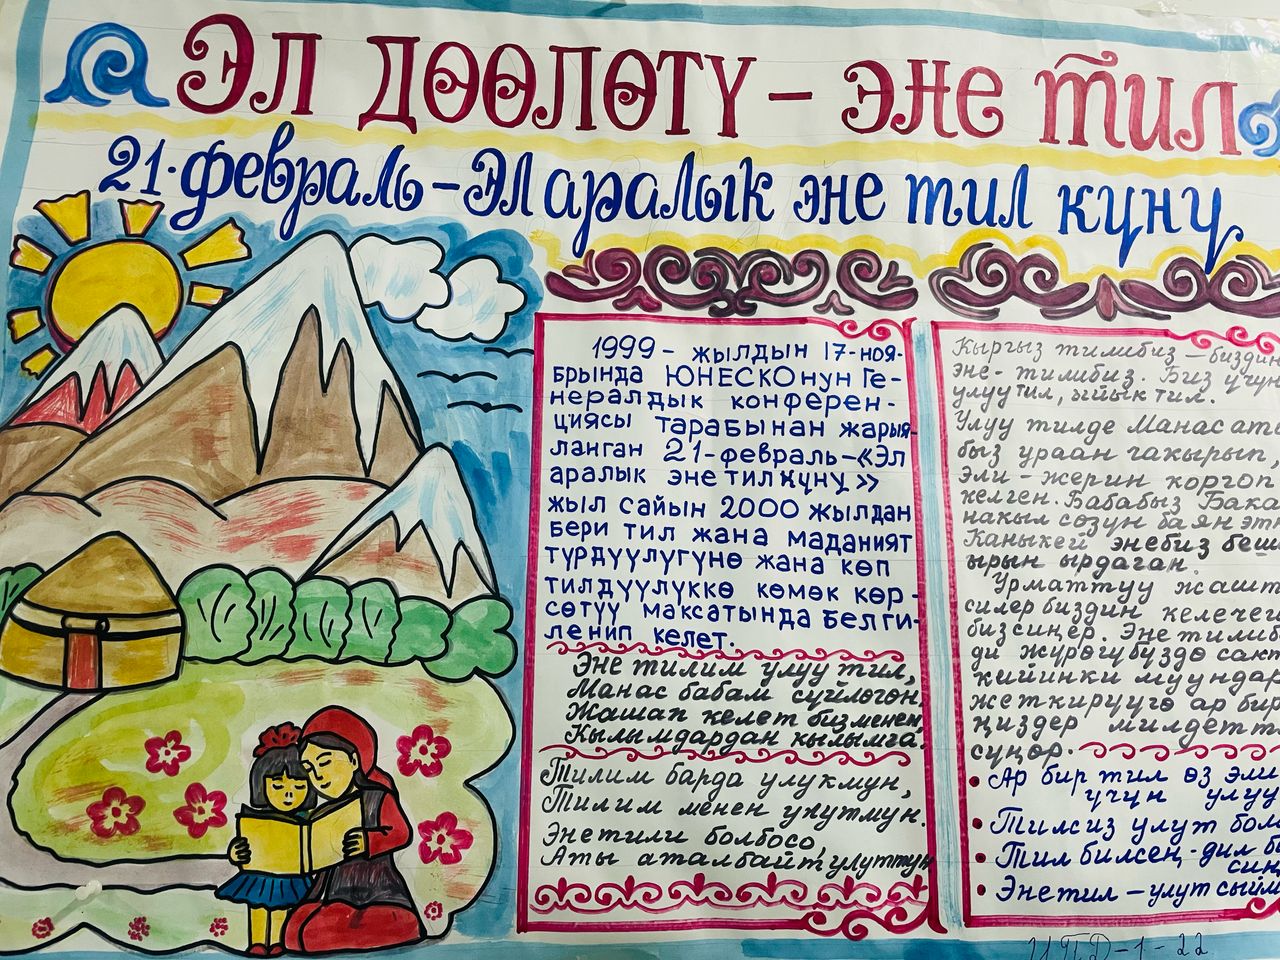 Эл дөөлөтү – эне тил
21-февраль – Эл аралык эне тил күнү
1999 – жылдын 17-ноя-
брында ЮНЕСКОнун Ге-
нералдык конферен-
циясы тарабынан жарыя-
ланган 21-февраль – «Эл
аралык эне тил күнү»
жыл сайын 2000 жылдан
бери тил жана маданият
түрдүүлүгүнө жана көп
тилдүүлүккө көмөк көр-
сөтүү максатында белги-
ленип келет.
Эне тилим улуу тил,
Манас бабам сүйлөгөн,
Жашап келет биз менен,
Кылымдардан кылымга.
Тилим барда улукмун,
Тилим менен улутмун.
Эне тили болбосо,
Аты аталбайт улуттун
Кыргыз тилибиз – биздин
эне-тилибиз. Биз үчүн
улуу тил, ыйык тил.
Улуу тилде Манас ата
быз ураан чакырып,
эли – жерин коргоп
келген. Бабабыз Бака
накыл сөзүн баян эт
Каныкей энебиз беши
ырын ырдаган.
Урматтуу жашт
силер биздин келечег
бизсиңер. Эне тилиб
ди жүрөгүбүздө сакт
кийинки муундар
жеткирүүгө ар бир
ңиздер милдетт
сүңөр.
• Ар бир тил өз эли
үчүн улуу
• Тилсиз улут бол
• Тил билсең - дил б
сиң
• Эне тил – улут сыйм
ИПД-1-22